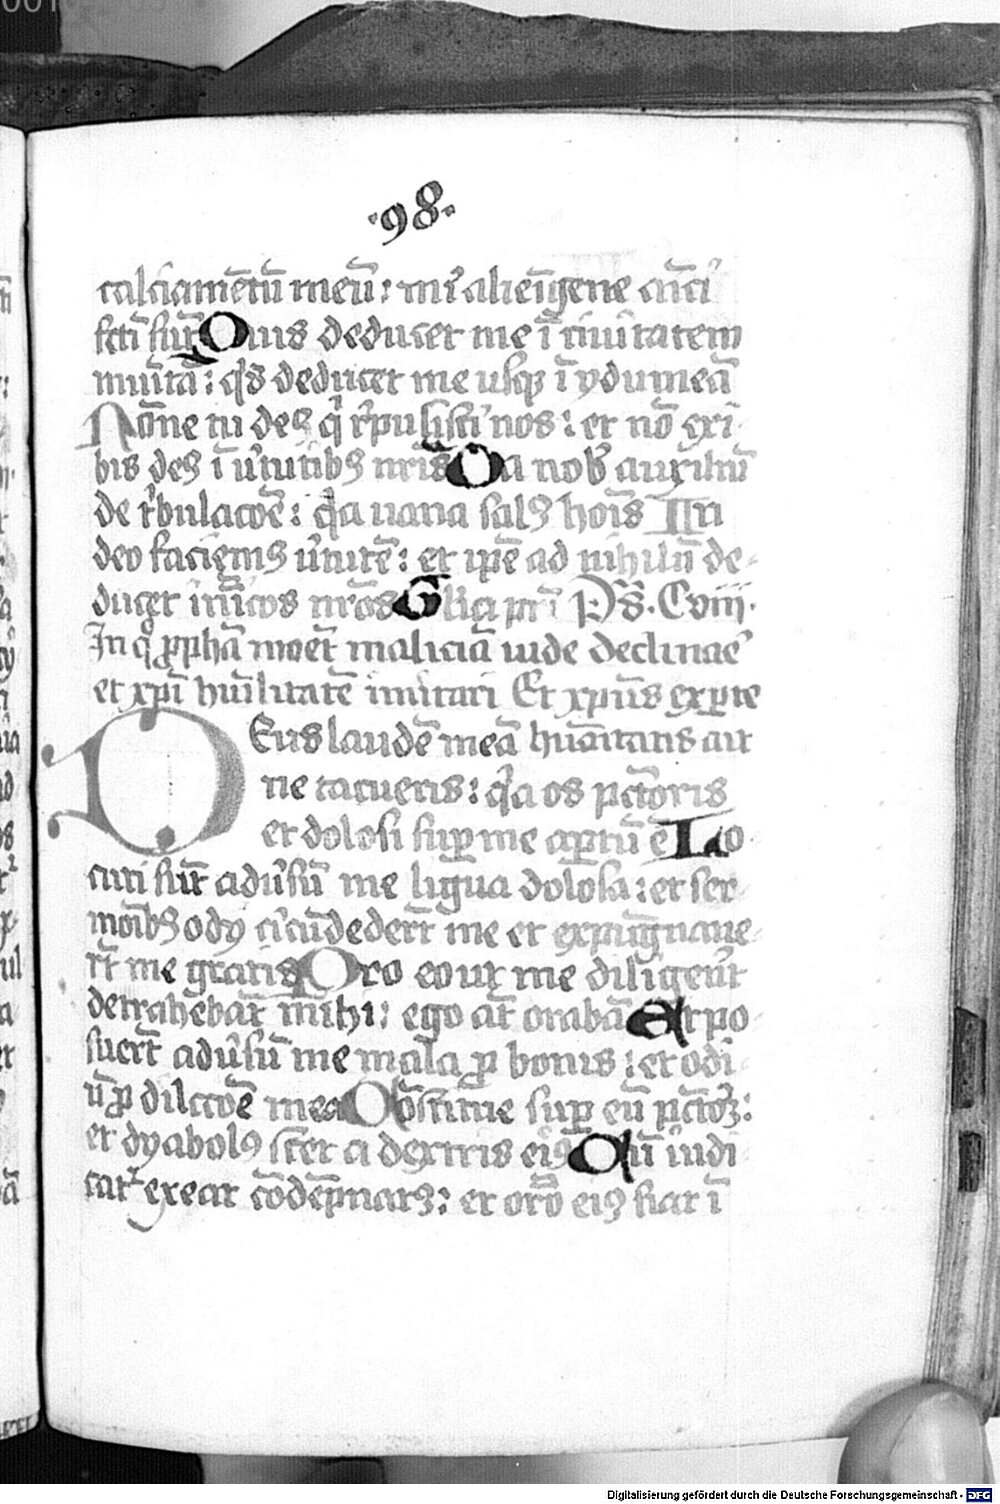 ·98·
calciamētū meū: mͥ alieīgene amͥci
fcti sūt Quis deducet me ī ciuitatem
munitā: qͥs deducet me usqꝫ ī ydumeā
Nōne tu deꝰ qͥ repulisti nos: et nō exi
bis deꝰ ī uͥtutibꝰ nrīs Da nobͥ auxiliū
de tͥbulacōe: qͥa uana salꝰ hoīs In
deo faciemꝰ uͥtutē: et ipē ad nihilū de-
ducet inīcos nrōs Glīa prī Pͣs. Cviij.
In qͦ ꝓphā monet maliciā iude declinaē
et xpī huīlitatē imitari Et xpūs ex pte
Deus laudē meā hūanitatis ait
ne tacueris: qͥa os pctōris
et dolosi suꝑ me aꝑtū ē Lo
cuti sūt aduͥsū me ligua dolosa: et ser-
mōibꝰ ody cͥcūdedert me et expugnaue-
rt me gratis Pro eo ut me diligeret
detrahēbāt mihi: ego āt orabā Et po
suert aduͥsū me mala ꝓ bonis: et odi
ū ꝓ dilccōe mea Cōstitue suꝑ eū pctōꝝ:
et dyabolꝰ stet a dextris eiꝰ Cū iudi
catͬ exeat cōdēpnatꝰ: et orō eiꝰ fiat ī
Digitalisierung gefördert durch die Deutsche Forschungsgemeinschaft - DFG